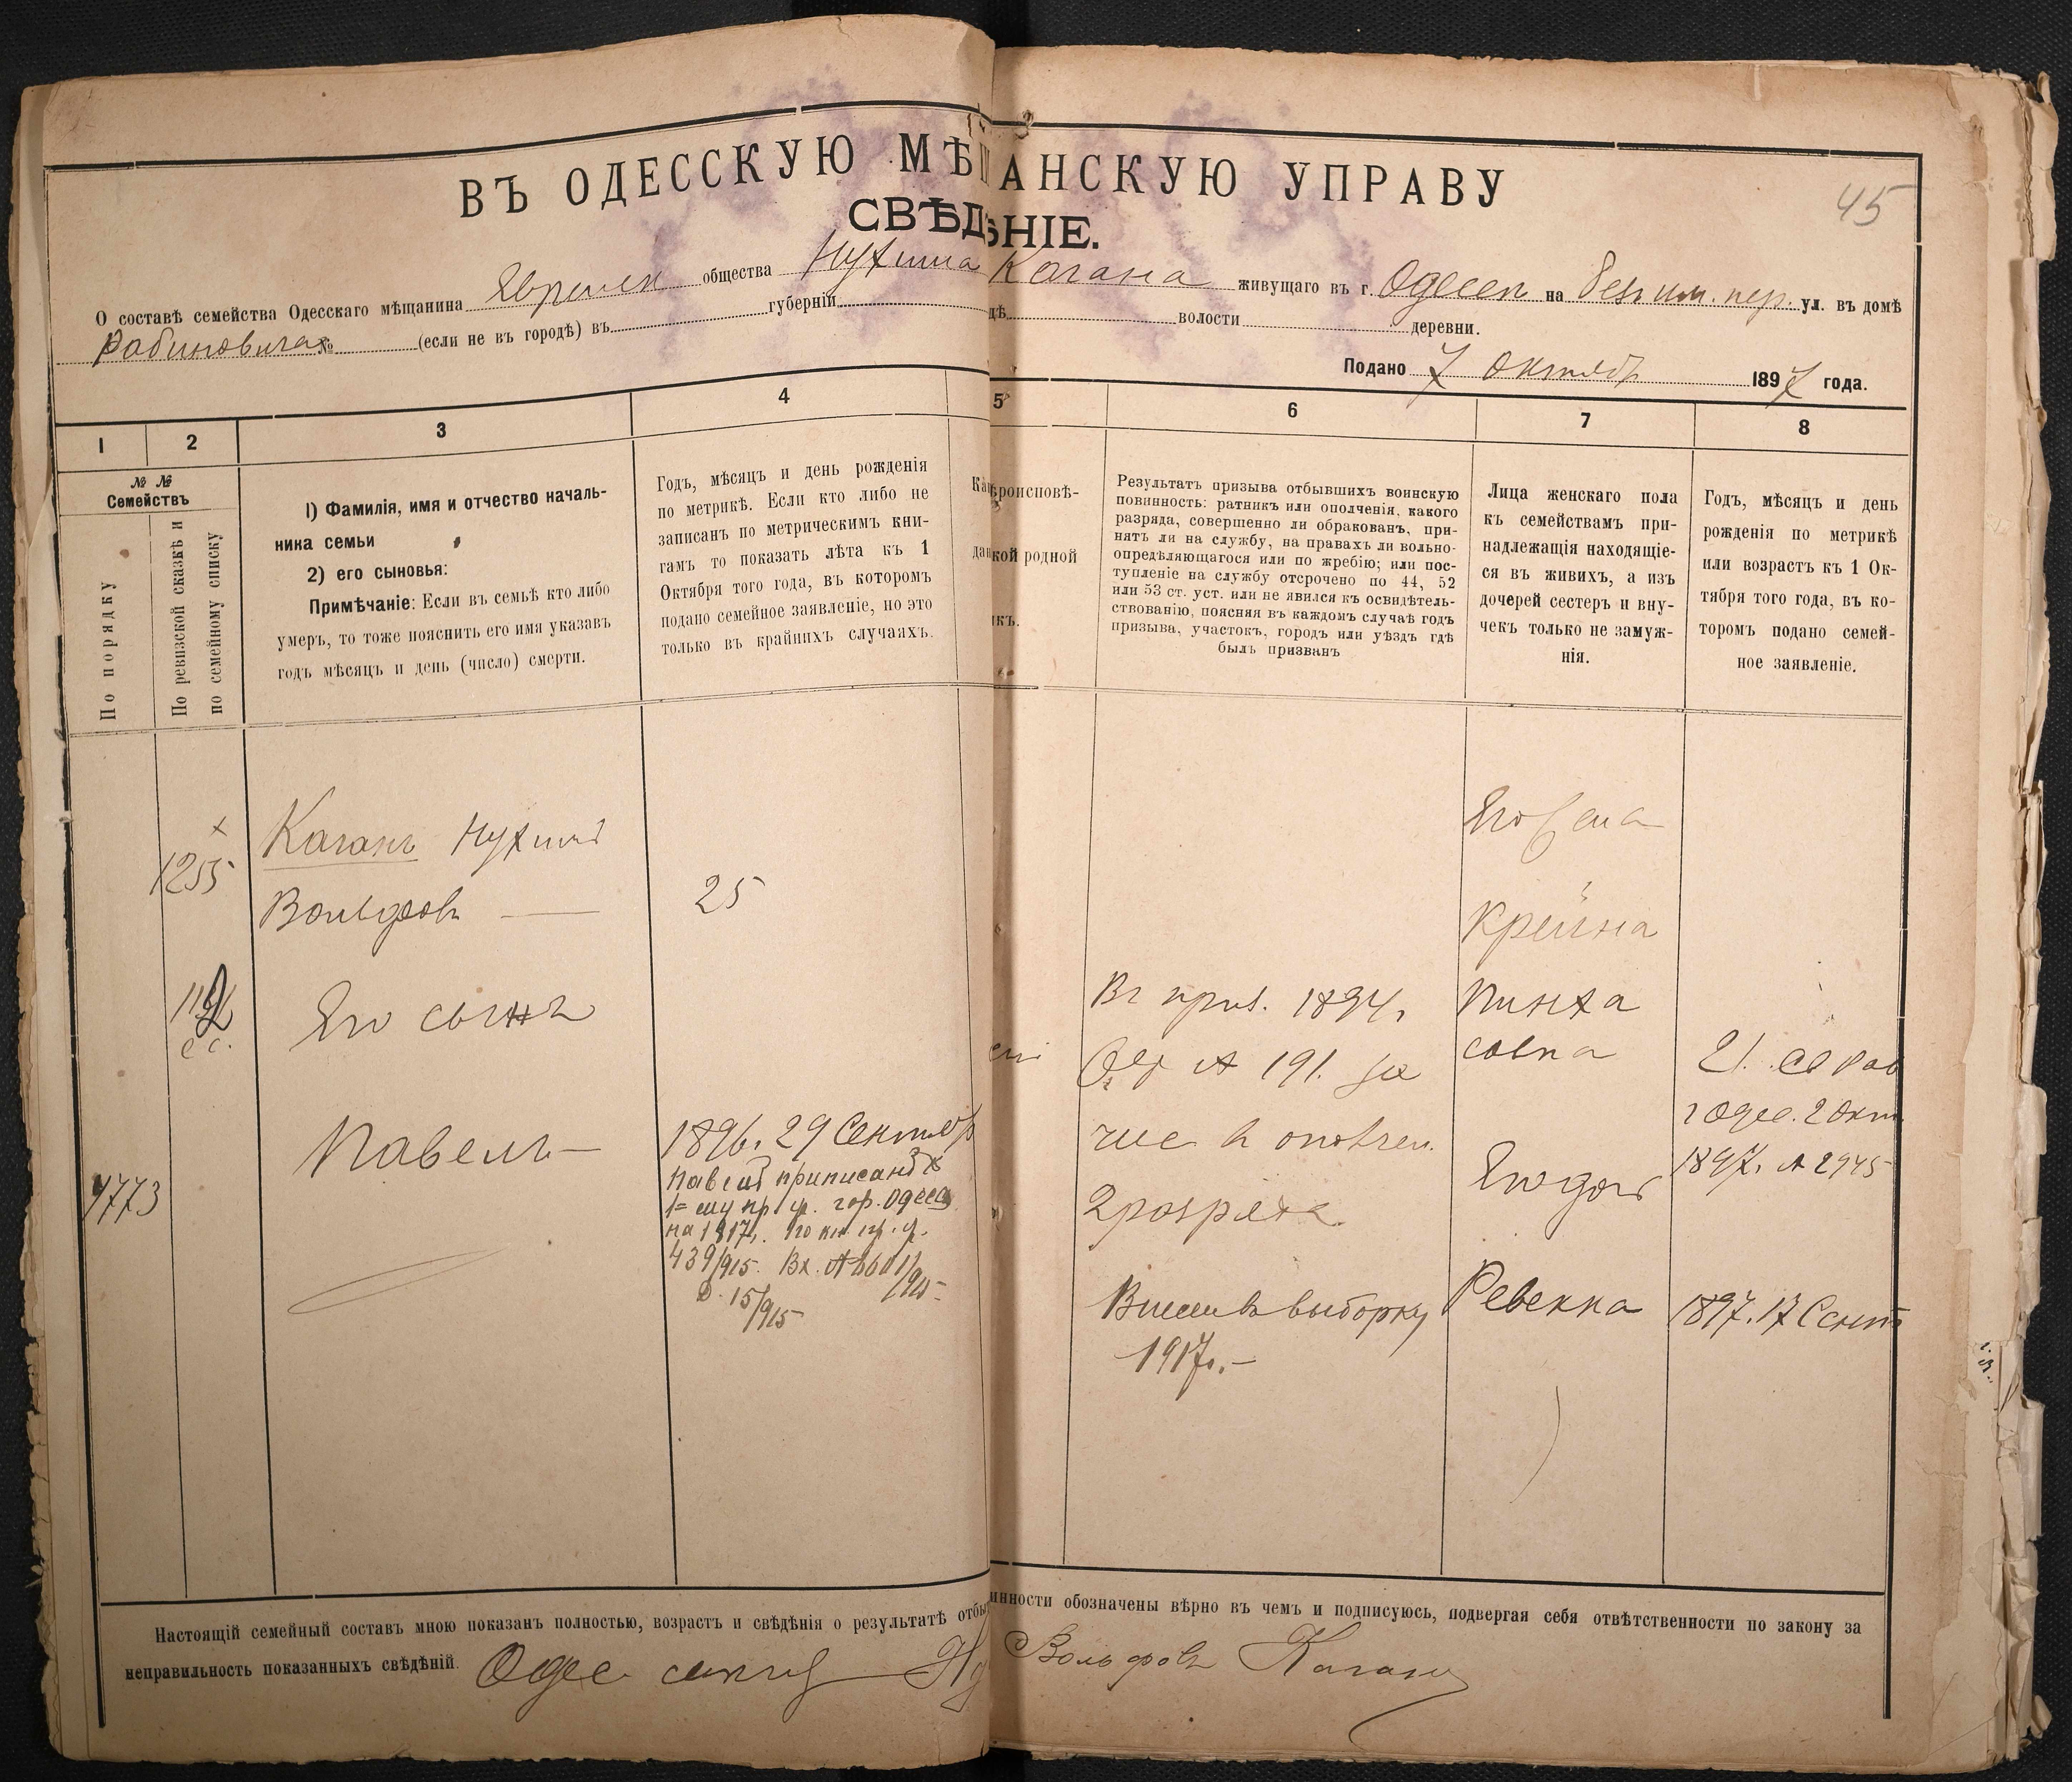 45
ВЪ ОДЕССКУЮ МѢЩАНСКУЮ УПРАВУ
СВѢДѢНІЕ.
О составѣ семейства Одесскаго мѣщанина Евреиск общества Нухима Кагана живущаго въ г. Одессѣ на Безъим. пер. ул. въ домѣ
Рабиновича № (если не въ городѣ) въ губерніи дѣ волости деревни.
Подано 7 Октябр 1897 года.
1 2 3 4 5 6 7 8
№ № Семействъ
По порядку
По ревизской сказкѣ и
по семейному списку
1) Фамилія, имя и отчество началь-
ника семьи
2) его сыновья:
Примѣчаніе: Если въ семьѣ кто либо
умеръ, то тоже пояснить его имя указавъ
годъ мѣсяцъ и день (число) смерти.
Годъ, мѣсяцъ и день рожденія
по метрикѣ. Если кто либо не
записанъ по метрическимъ кни-
гамъ то показать лѣта къ 1
Октября того года, въ которомъ
подано семейное заявленіе, но это
только въ крайнихъ случаяхъ.
Ка вѣроисповѣ-
дан кой родной
ыкъ.
Результатъ призыва отбывшихъ воинскую
повинность: ратникъ или ополченія, какого
разряда, совершенно ли обракованъ, при-
нятъ ли на службу, на правахъ ли вольно-
опредѣляющагося или по жребію; или пос-
тупленіе на службу отсрочено по 44, 52
или 53 ст. уст. или не явился къ освидѣтель-
ствованію, поясняя въ каждомъ случаѣ годъ
призыва, участокъ, городъ или уѣздъ гдѣ
былъ призванъ
Лица женскаго пола
къ семействамъ при-
надлежащія находящіе-
ся въ живихъ, а изъ
дочерей сестеръ и вну-
чекъ только не замуж-
нія.
Годъ, мѣсяцъ и день
рожденія по метрикѣ
или возрастъ къ 1 Ок-
тября того года, въ ко-
торомъ подано семей-
ное заявленіе.
1255
Каганъ Нухимъ
Вольфовъ —
25
Его сынъ
Павелъ —
4773
1896. 29 Сентябр
Павелъ приписанъ к
1=му пр. уч. гор. Одесса
на 1917г. по кн. пр. у.
439/915. Вх. №
15/915
Въ приз. 1894г.
№ 191. за
чис. в ополчен.
2 розряда.
Внесенъ въ выборку
1917г. —
Его жена
Крейна
Пинха
совна
Его дочь
Ревекка
21. св Рав
г Одес. 2 Окт
1897г. № 2945
1897. 17 Сент
Настоящій семейный составъ мною показанъ полностью, возрастъ и свѣдѣнія о результатѣ отбы инности обозначены вѣрно въ чемъ и подписуюсь, подвергая себя отвѣтственности по закону за
неправильность показанныхъ свѣдѣній. Одес Ну Вольфовъ Каганъ